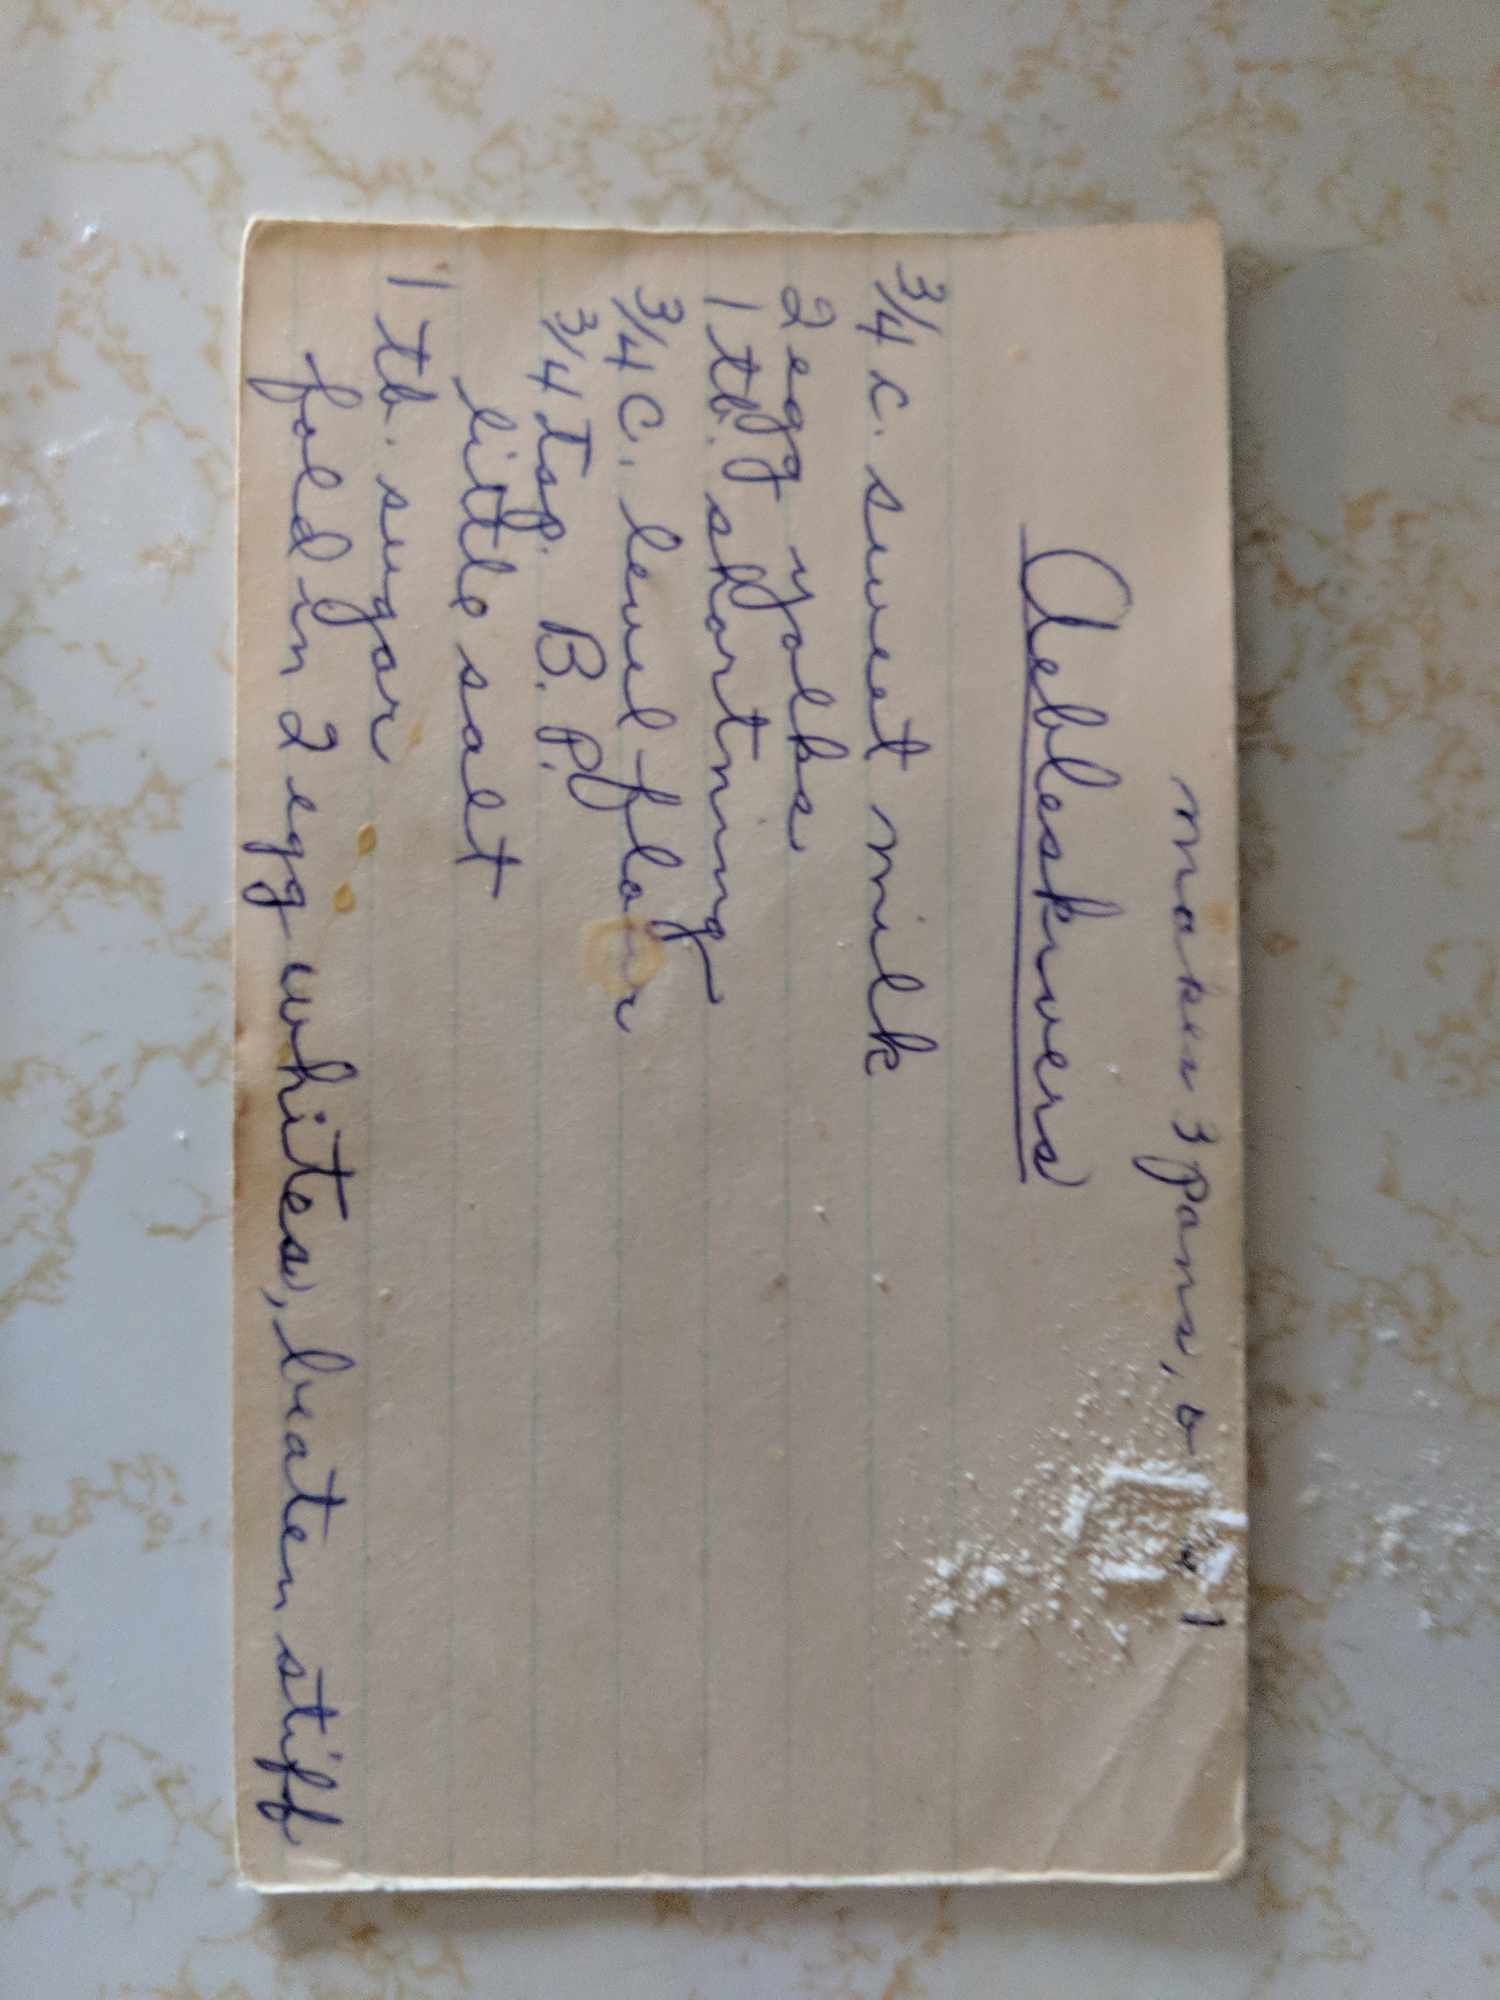 makes 3 pans,
Aebleskivers
3/4 c. sweet milk
2 egg yolks
1 tb. shortning
3/4 C. level flour
3/4 Tsp. B.P.
little salt
1 tb. sugar
fold in 2 egg whites, beaten stiff